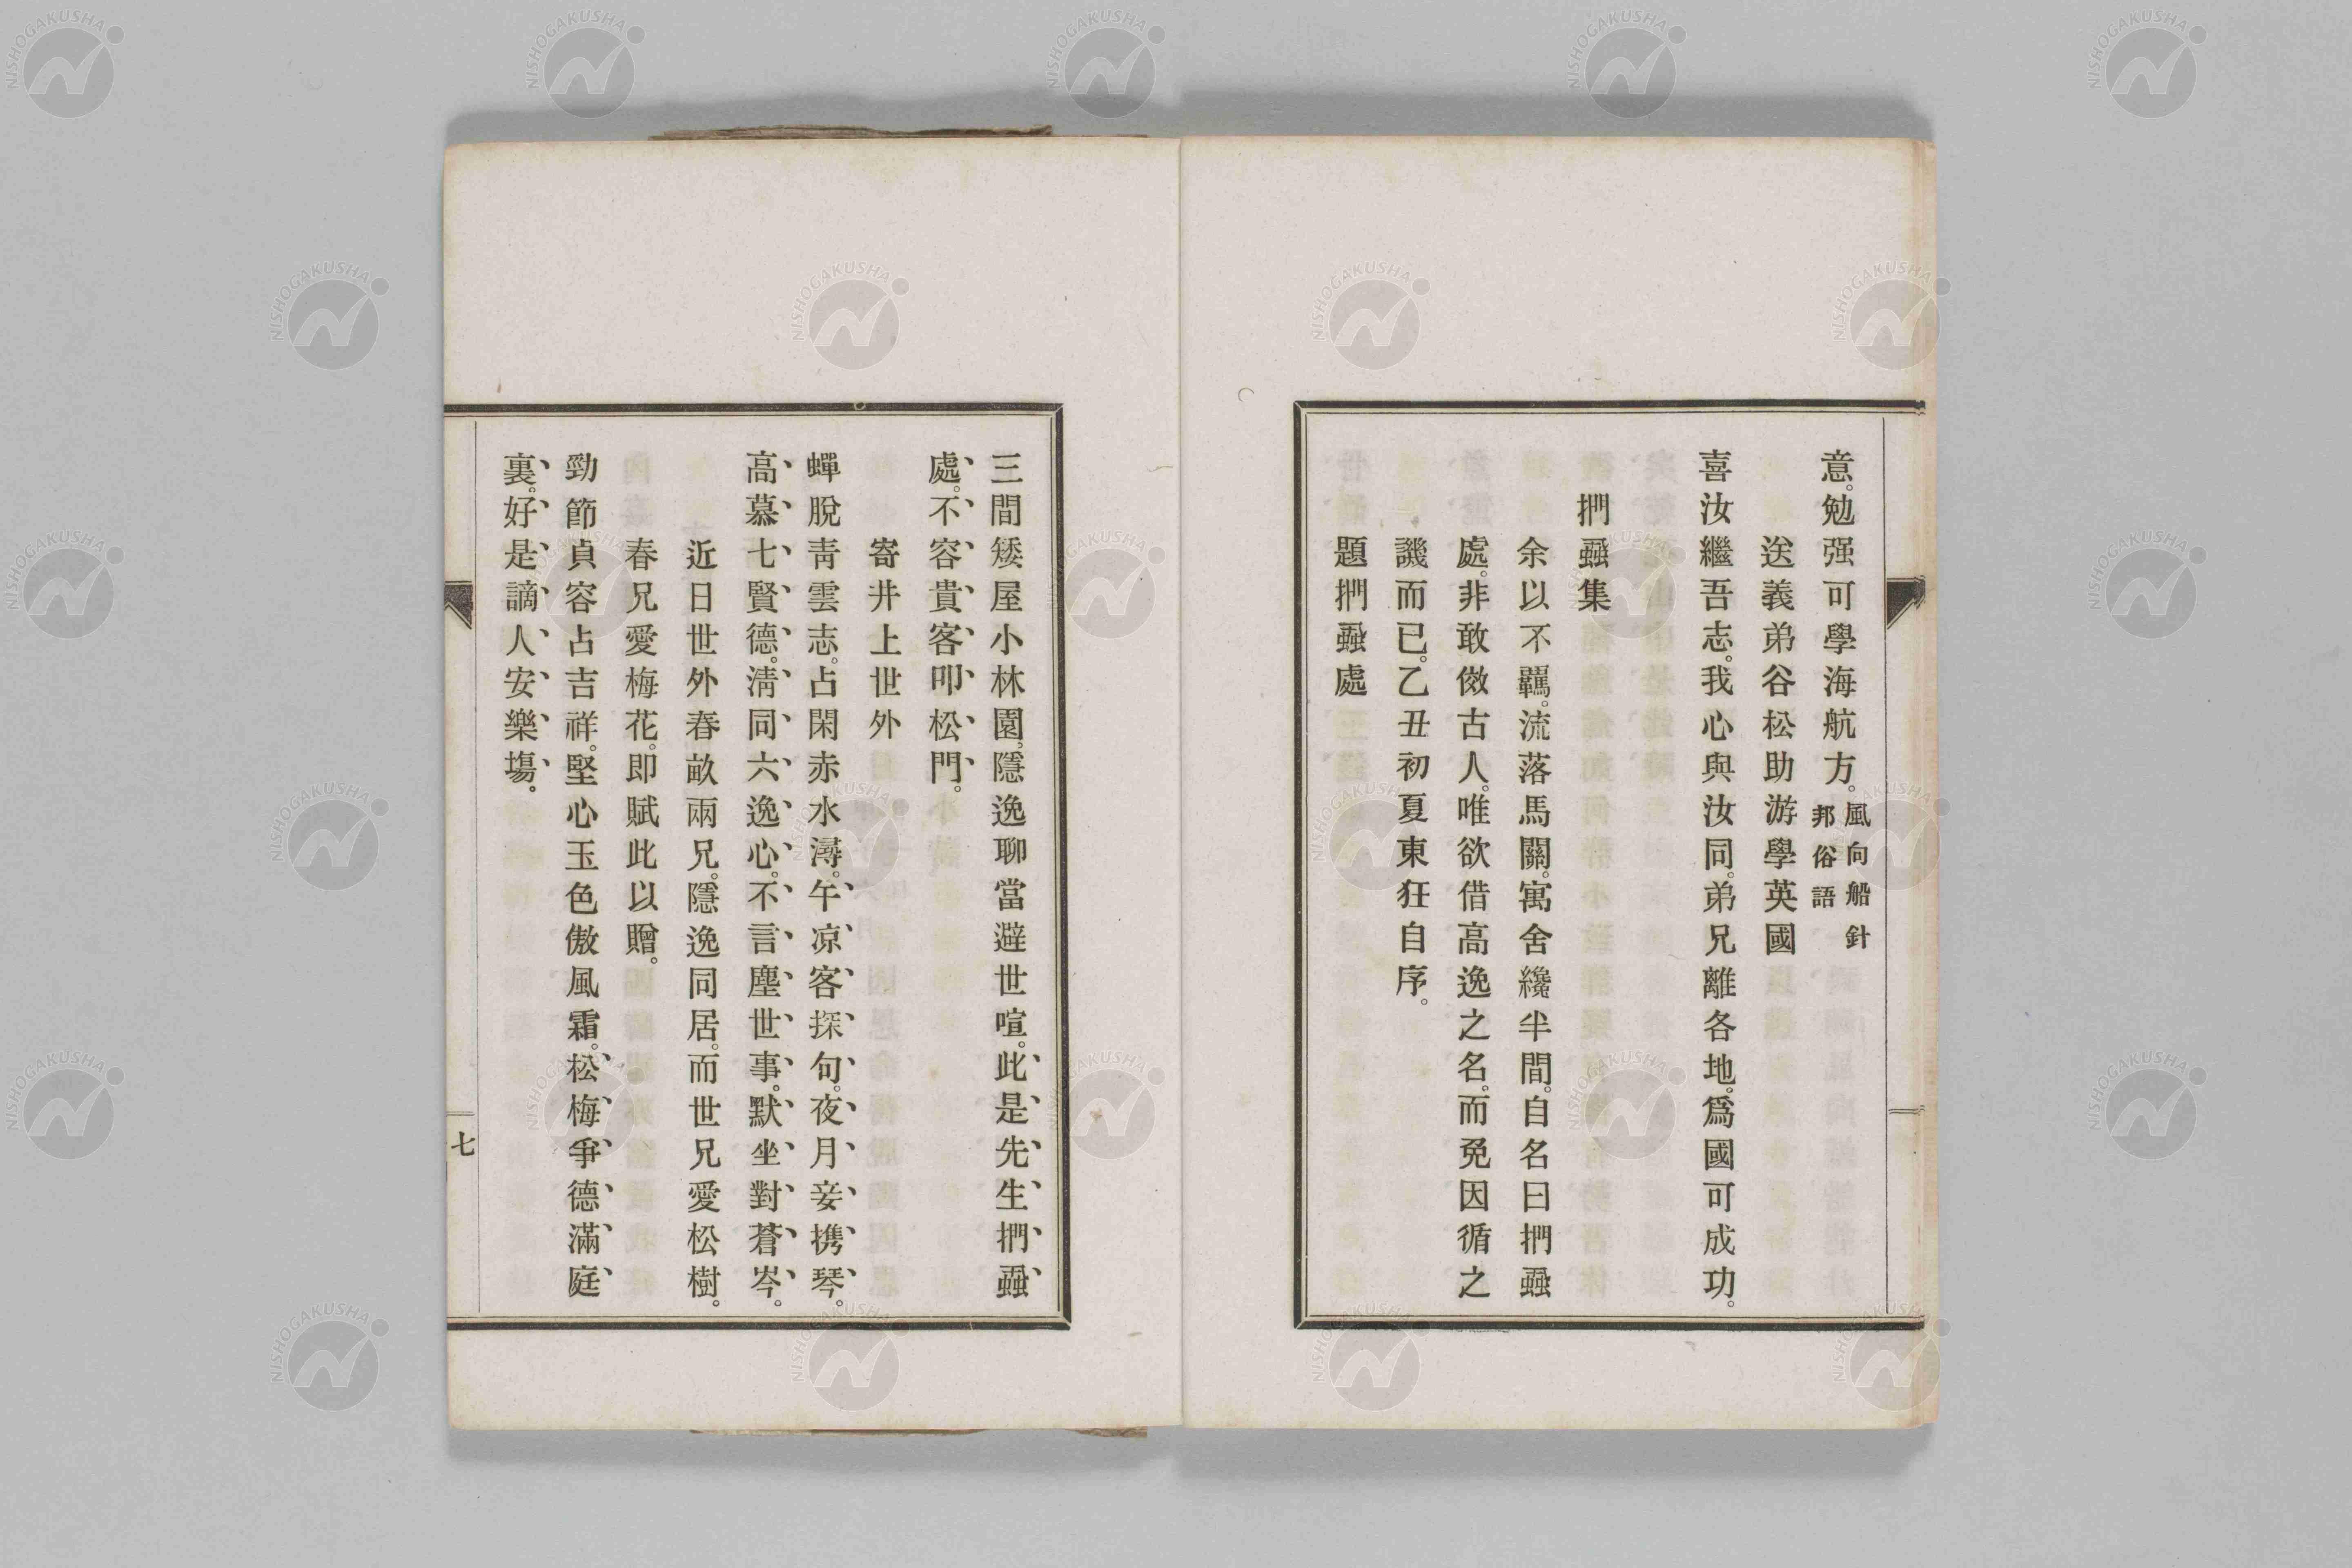 意。勉强可學海航方。風向船針邦俗語
送義弟谷松助游學英國
喜汝繼吾志。我心與汝同。弟兄離各地。爲國可成功。
捫蝨集
余以不羈。流落馬關。寓舍纔半間。自名曰捫蝨
處。非敢傚古人。唯欲借高逸之名。而免因循之
譏而已。乙丑初夏東狂自序。
題捫蝨處
三間矮屋小林園。隱逸聊當避世喧。此是先生捫蝨
處。不容貴客叩松門。
寄井上世外
蟬脫靑雲志。占閑赤水潯。午凉客探句。夜月妾携琴。
高慕七賢德。淸同六逸心。不言塵世事。默坐對蒼岑。
近日世外春畝兩兄。隱逸同居。而世兄愛松樹。
春兄愛梅花。卽賦此以贈。
勁節貞容占吉祥。堅心玉色傲風霜。松梅爭德滿庭
裏。好是謫人安樂塲。
七
NISHOGAKUSHA